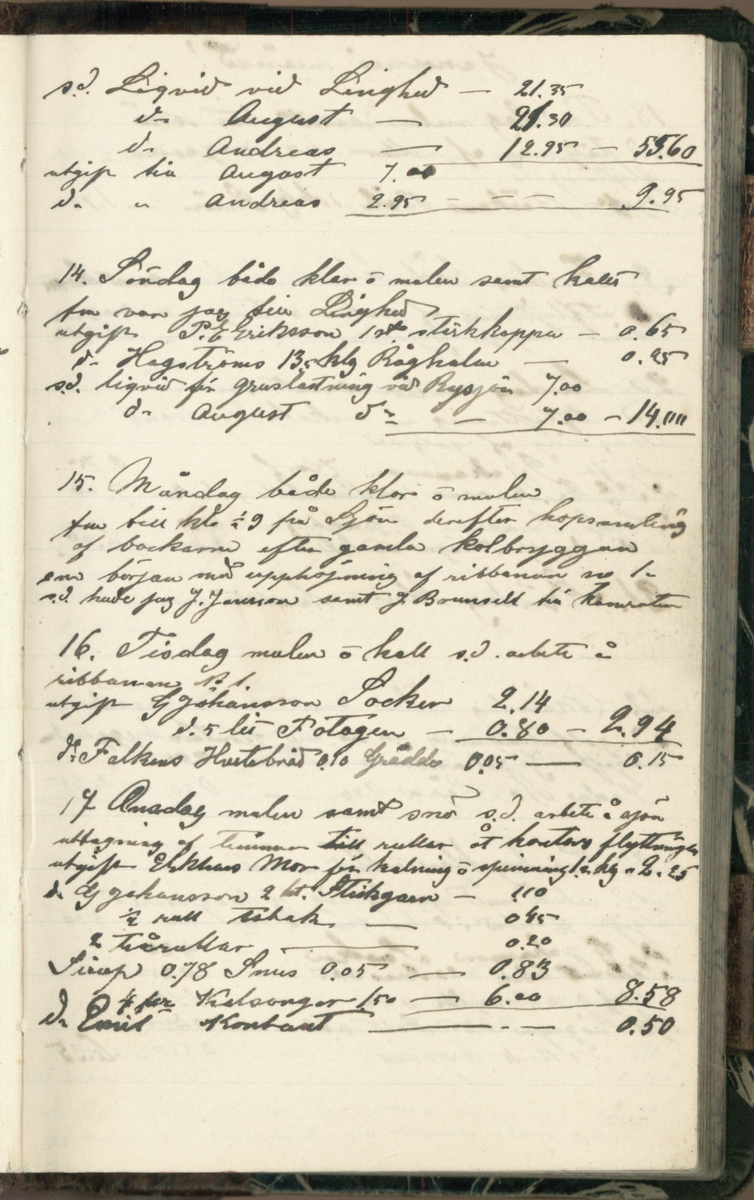 s.d. Liqvid vid Linghed — 21.35
d:o August — 21.30
d:o Andreas — 12.95 — 55.60
utgift till August 7.00
d:o " Andreas 2.95 — — — 9.95
14. Söndag både klar o mulen samt kallt
fm var jag till Linghed
utgift P.E Eriksson 1 st stärkkoppa — 0.65
d:o Hagströms 13,5 klg Råghalm — 0.25
s.d. liqvid för gruslastning vid Rysjön 7.00
d:o August d:o — 7.00 — 14.00
15. Måndag både klar o mulen
fm till kl ½ 9 på Sjön derefter hopsamling
af bockarne efter gamla kolbryggan
em början med upphöjning af ribbanan no 1.
s.d. hade jag J. Jansson samt J Brunsell till kamrater
16. Tisdag mulen o kall s.d. arbete å
ribbanan N 1.
utgift G Johansson Socker 2.14
d:o 5 lit Fotogen — 0.80 — 2.94
d:o Falkens Hvetebröd 0.10 Grädde 0.05 — 0.15
17 Onsdag mulen samt snö s.d. arbete å sjön
uttagning af timmer till rullar åt kontors flyttningen
utgift Erkhans Mor för kalning o spinning 1.2 klg " 2.25
d:o G Johansson 2 kt. Stickgarn — 1.10
½ rull tobak — 0.45
2 trårullar — 0.20
Sirap 0.78 Snus 0.05 — 0.83
4 par Kalsonger 1.50 — 6.00 8.58
d:o Emil Kontant — . — 0.50